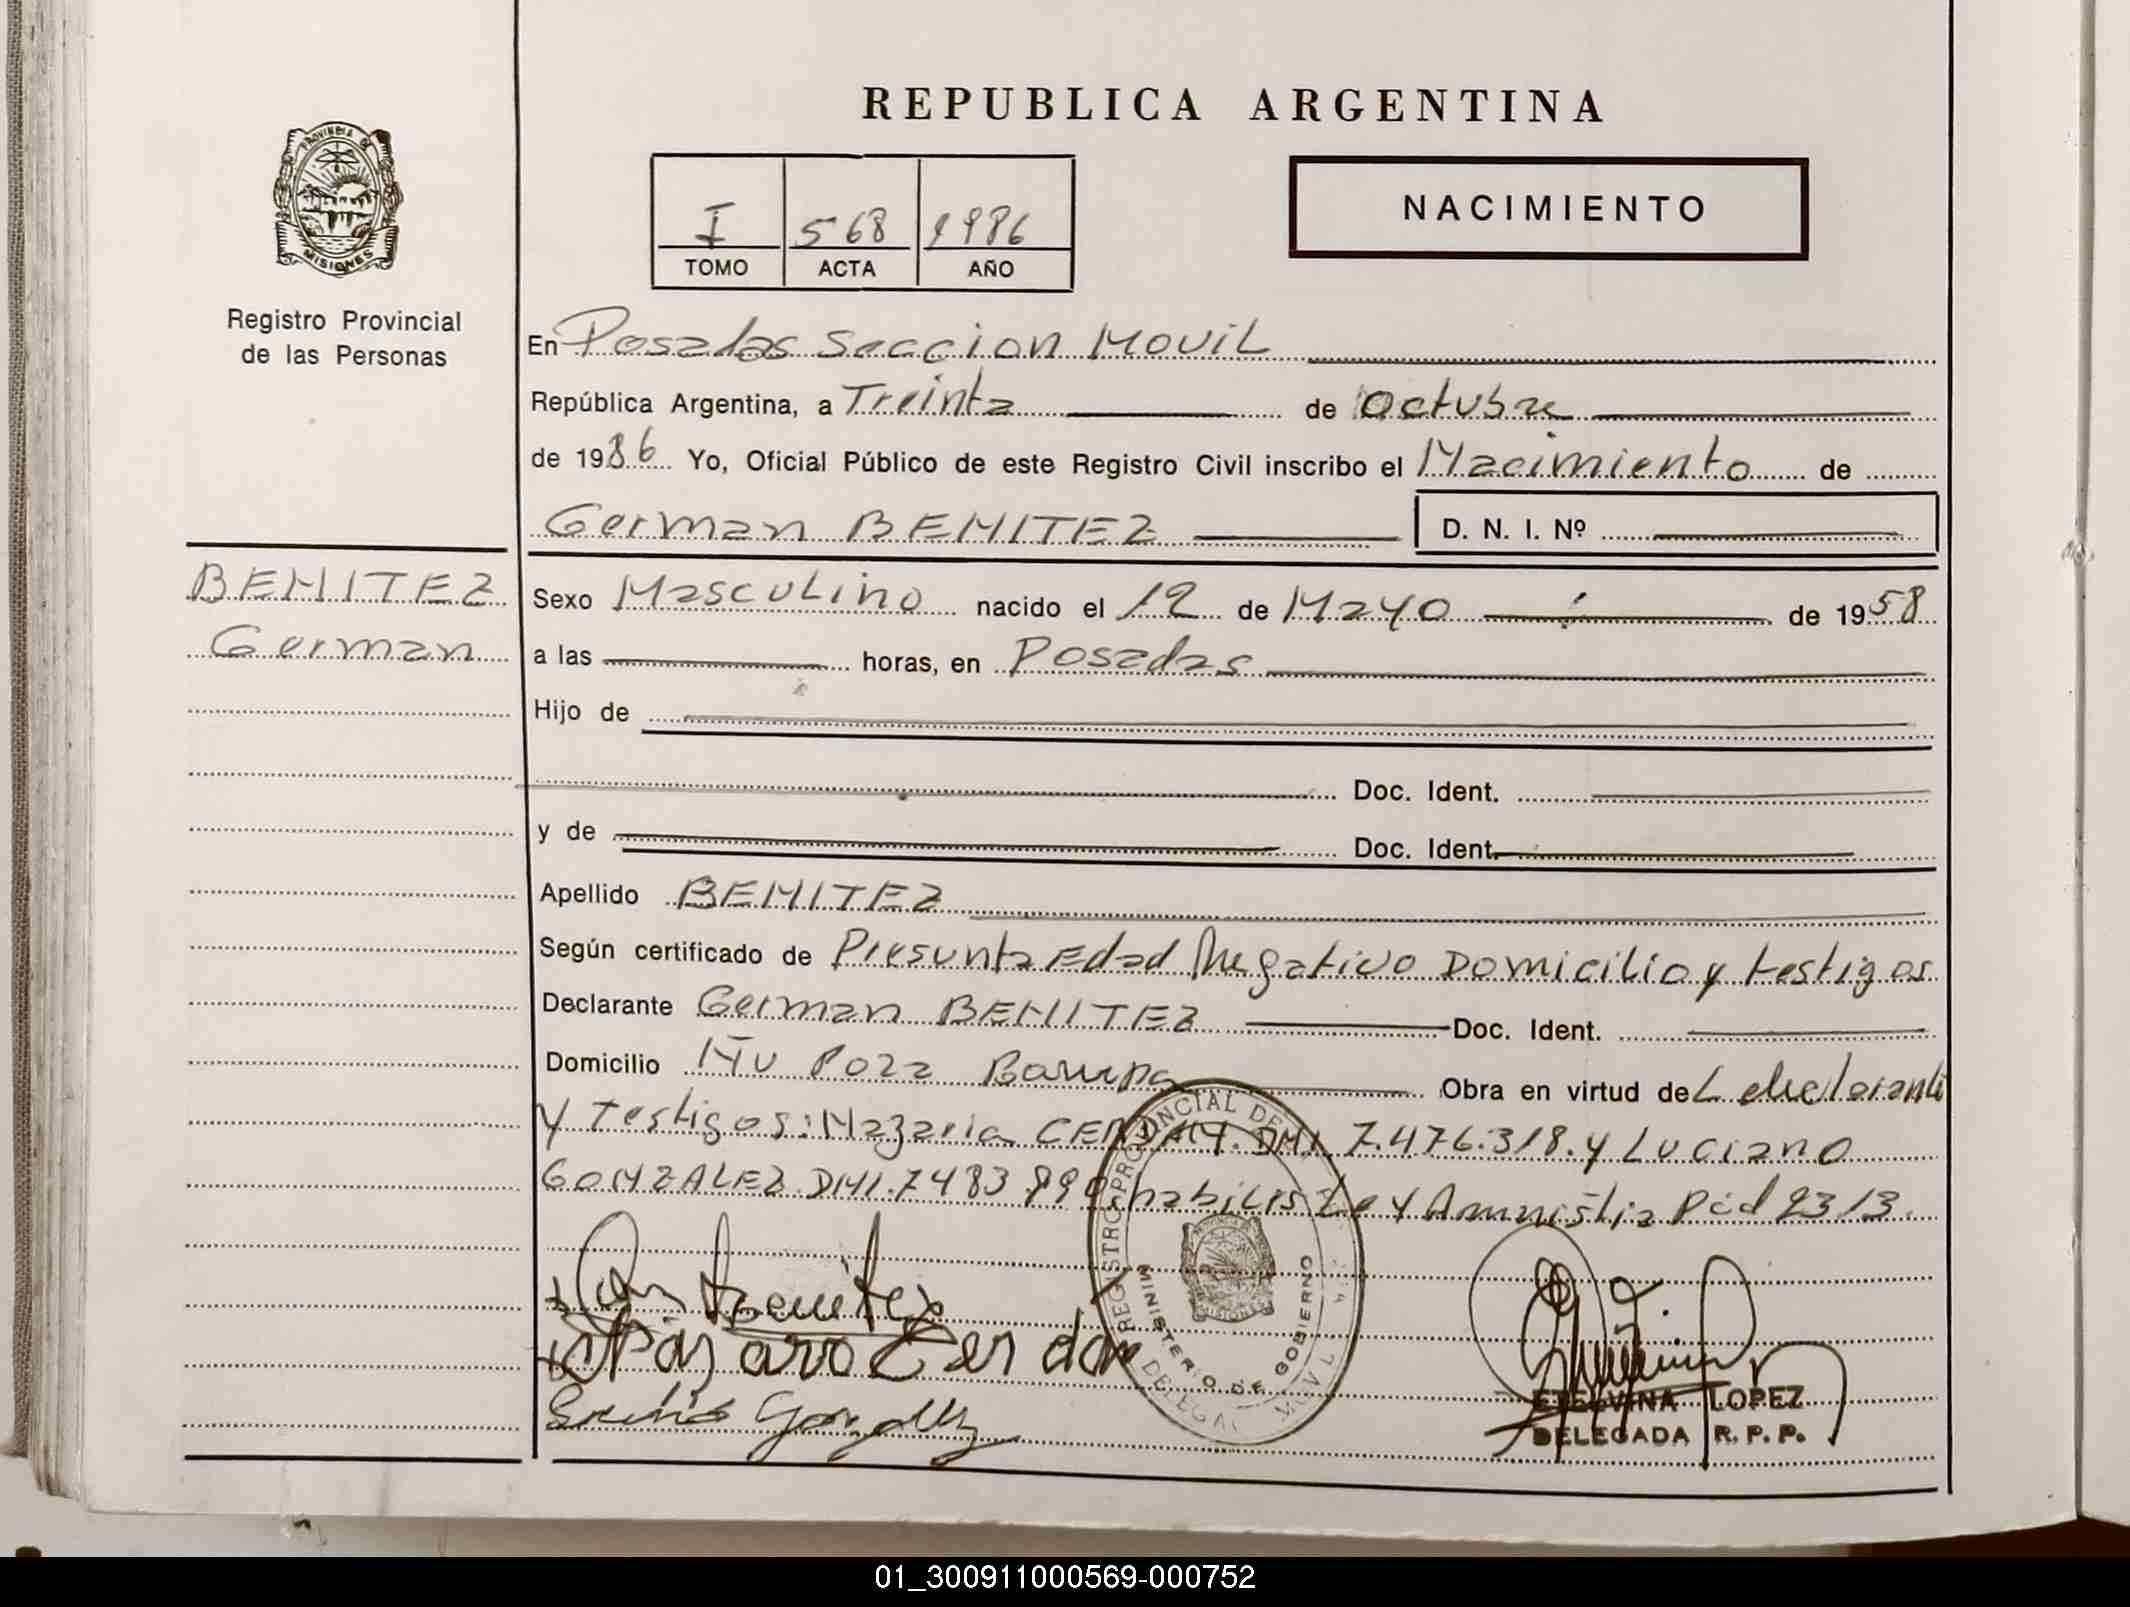 REPUBLICA ARGENTINA
PROVINCIA DE
MISIONES
Registro Provincial
de las Personas
I 568 1986
TOMO ACTA AÑO
NACIMIENTO
En Posadas Seccion MOVIL
República Argentina, a Treinta de Octubre
de 1986 Yo, Oficial Público de este Registro Civil inscribo el Nacimiento de
German BENITEZ D. N. I. Nº
BENITEZ
German
Sexo Masculino nacido el 12 de Mayo de 1958
a las horas, en Posadas
Hijo de
Doc. Ident.
y de Doc. Ident.
Apellido BENITEZ
Según certificado de Presunta Edad Negativo Domicilio y testigos
Declarante German BENITEZ Doc. Ident.
Domicilio Ñu Pora Obra en virtud de
y Testigos: DNI. 7.476.318. y Luciano
GONZALEZ DNI. 7483 habiles Ley Amnistia 2313.
Benitez
Gonzalez
REGISTRO PROVINCIAL DE
MINISTERIO DE GOBIERNO
ETELVINA LOPEZ
DELEGADA R. P. P.
01_300911000569-000752